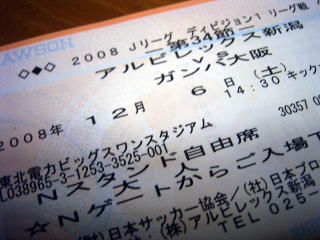 LAWSON
◇◆◇ 2008 Jリーグ ディビジョン1 リーグ戦
－第34節－
アルビレックス新潟
VS
ガンバ大阪
2008年 12月 6日(土)
14:30 キックオ
30357 00
東北電力ビッグスワンスタジアム
L038965-3-1253-3525-001
Nスタンド自由席
大 人
☆Nゲートからご入場下
日本サッカー協会/(社)日本プロ
(株)アルビレックス新潟
TEL 025-